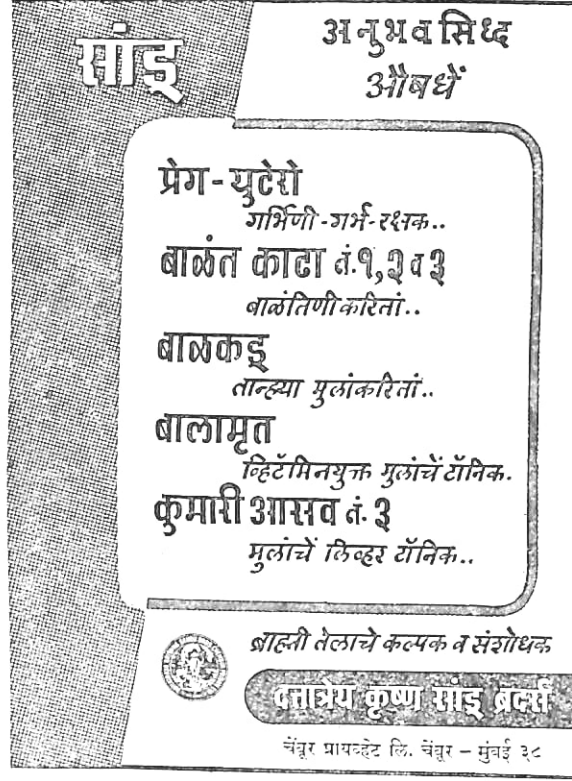 सांडू
अनुभवसिध्द
औषधें
प्रेग-युटेरो
गर्भिणी-गर्भ-रक्षक..
बाळंत काढा नं.१,२ व ३
बाळंतिणीकरितां..
बाळकडू
तान्ह्या मुलांकरितां..
बालामृत
व्हिटॅमिनयुक्त मुलांचें टॉनिक.
कुमारी आसव नं. ३
मुलांचें लिव्हर टॉनिक..
ब्राह्मी तेलाचे कल्पक व संशोधक
दत्तात्रेय कृष्ण सांडू ब्रदर्स
चेंबूर प्रायव्हेट लि. चेंबूर – मुंबई ३८